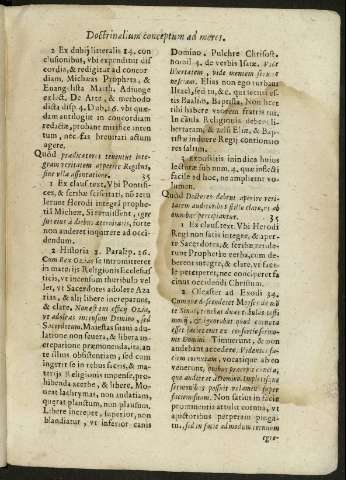 Doctrinalium conceptum ad mores.
2 Ex dubij litteralis 14. con-
clusionibus, vbi expenditur dis
cordia, & redigitur ad concor-
diam, Michæas Propheta, &
Euangelista Matth. Adiunge
ex lect. De Arte, & methodo
dicta disp. 4. Dub. 16. vbi quæ-
dam antilogiæ in concordiam
redactæ, probant mirifice inten
tum, nec sat breuitati actum
agere.
Quod prædicatores teneantur inte-
gram veritatem aperire Regibus,
sine vlla assentatione. 35
1 Ex claus. text. Vbi Pontifi-
ces, & scribæ sciscitati, nõ reue
lerunt Herodi integrã prophe-
tiã Michææ, Si renuissent, ægre
fortasse
non auderet inquirare ad occi-
dendum.
2 Historia 2. Paralip. 26.
Cum Rex Ozias se intromitteret
in materijs Religionis Ecclesias
ticis, vt incensum thuribulo vel
let, vt Sacerdotes adolere Aza
rias, & alij libere increparunt,
& clare, Non est tui officij Ozia,
vt adoleas incensum Domino, sed
Sacerdotum. Maiestas suaui adu-
latione non fauens, & libera in-
crepatione præmonenda, ita an
te illius obsistentiam, sed cum
ingerit se in rebus sacris, & ma-
terijs Religionis impense, pro-
hibenda acerbe, & libere. Mo-
ueat lachrymas, non audiam,
quærat planctum, non plausum.
Libere increper, superior, non
blandiatur, vt inferior canis
Domino. Pulchre Chrisost.
homil. 4. de verbis Isaiæ. Vide
libertatem, vide mentem
Elias non ego turbaui
Israel, sed tu, &c. qui secuti es-
tis Baalim, Baptista. Non licet
tibi habere vxorem fratris tui.
In causa Religionis debent li-
bertatem, & zelũ Eliæ, & Bap-
tistæ induere Regij contionato
res saltum.
3 Expositis in indica huius
lecturæ sub num. 4. quæ inflecti
facile ad hoc, ne ampliem vo-
lumen.
Quod Doctores debent aperire veri-
tatem audientibus
percipiatur. 35
1 Ex claus. text. Vbi Herodi
Regi non satis integre, & aper-
te Sacerdotes, & scribæ reddi-
tum Prophetiæ verba, cum de-
berent integre, & clare, vt faci-
le perciperet, nec conciperet fa
cinus occidendi Christum.
2 Oleaster ad Exodi 34.
Cumque descenderet Moyses de mõ
te Sinai, tenebat duas tabulas testi
monij, & ignorabat quod cornuta
esset facies sua ex consortio sermo-
nis Domini. Timuerunt, & non
audebant accedere. Videntes fa-
ciem cornutam, vocatique ab eo
venerunt,
que audierat à Domino. Impletisque
sermonibus posuit velamen super
faciem suam. Non satius in facie
prominentis attulit cornua, vt
auctoribus perperam pinga-
tur, sed in facie ad modum cornuum
egre-